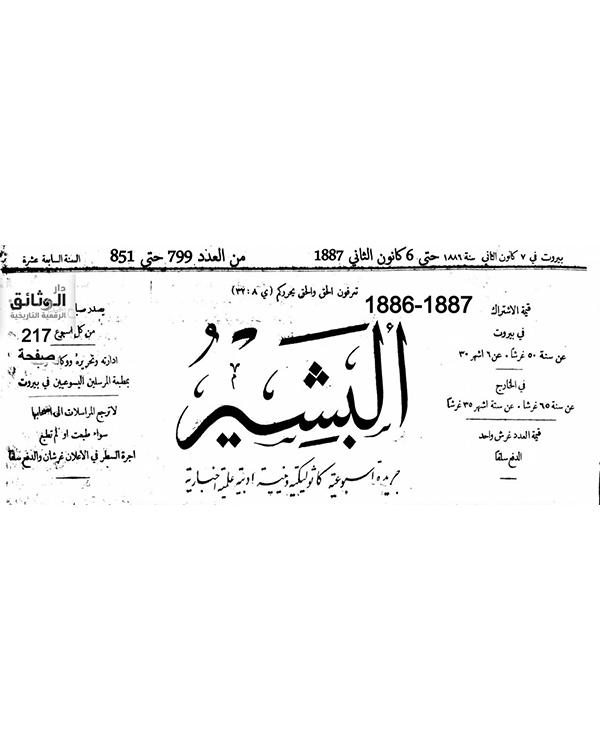 بيروت في ٧ كانون الثاني سنة ١٨٨٦ حتى 6 كانون الثاني 1887
من العدد 799 حتى 851
السنة السابعة عشرة
تعرفون الحق والحق يحرركم (ي ٨: ٣٢)
1886-1887
البشير
جريدة اسبوعية كاثوليكية دينية ادبية علمية اخبارية
قيمة الاشتراك
في بيروت
عن سنة ٥٠ غرشًا . عن ٦ اشهر ٣٠
في الخارج
عن سنة ٦٥ غرشًا . عن ستة اشهر ٣٥ غرشًا
قيمة العدد غرش واحد
الدفع سلفًا
دار
الوثائق
الرقمية التاريخية
يصدر
من كل اسبوع
217
صفحة
ادارته وتحريره
بمطبعة المرسلين اليسوعيين في بيروت
لا ترجع المراسلات الى اصحابها
سواء طبعت او لم تطبع
اجرة السطر في الاعلان غرشان والدفع سلفًا